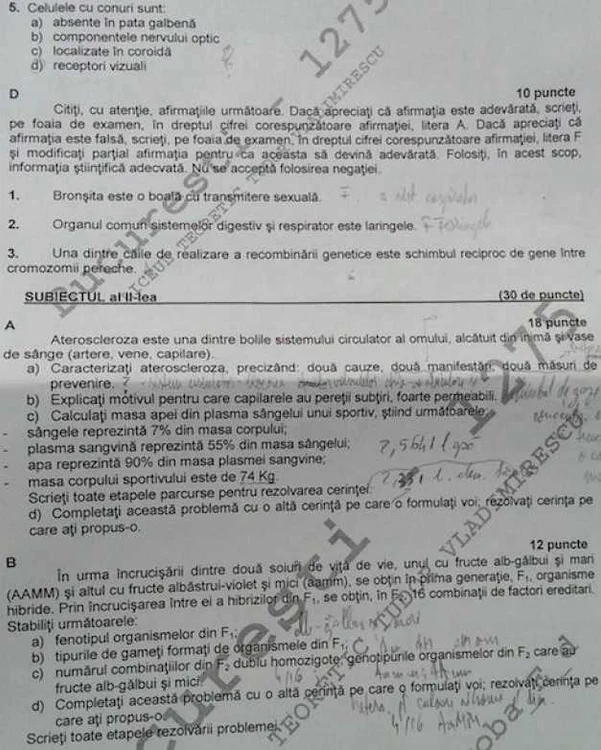 5. Celulele cu conuri sunt:
a) absente în pata galbenă
b) componentele nervului optic
c) localizate în coroidă
d) receptori vizuali
D 10 puncte
Citiţi, cu atenţie, afirmaţiile următoare. Dacă apreciaţi că afirmaţia este adevărată, scrieţi,
pe foaia de examen, în dreptul cifrei corespunzătoare afirmaţiei, litera A. Dacă apreciaţi că
afirmaţia este falsă, scrieţi, pe foaia de examen, în dreptul cifrei corespunzătoare afirmaţiei, litera F
şi modificaţi parţial afirmaţia pentru ca aceasta să devină adevărată. Folosiţi, în acest scop,
informaţia ştiinţifică adecvată. Nu se acceptă folosirea negaţiei.
1. Bronşita este o boală cu transmitere sexuală. F
2. Organul comun sistemelor digestiv şi respirator este laringele. F
3. Una dintre căile de realizare a recombinării genetice este schimbul reciproc de gene între
cromozomii pereche.
SUBIECTUL al II-lea (30 de puncte)
A 18 puncte
Ateroscleroza este una dintre bolile sistemului circulator al omului, alcătuit din inimă şi vase
de sânge (artere, vene, capilare).
a) Caracterizaţi ateroscleroza, precizând: două cauze, două manifestări, două măsuri de
prevenire.
b) Explicaţi motivul pentru care capilarele au pereţii subţiri, foarte permeabili.
c) Calculaţi masa apei din plasma sângelui unui sportiv, ştiind următoarele:
- sângele reprezintă 7% din masa corpului;
- plasma sangvină reprezintă 55% din masa sângelui;
- apa reprezintă 90% din masa plasmei sangvine;
- masa corpului sportivului este de 74 Kg.
Scrieţi toate etapele parcurse pentru rezolvarea cerinţei.
d) Completaţi această problemă cu o altă cerinţă pe care o formulaţi voi; rezolvaţi cerinţa pe
care aţi propus-o.
B 12 puncte
În urma încrucişării dintre două soiuri de viţă de vie, unul cu fructe alb-gălbui şi mari
(AAMM) şi altul cu fructe albăstrui-violet şi mici (aamm), se obţin în prima generaţie, F1, organisme
hibride. Prin încrucişarea între ei a hibrizilor din F1, se obţin, în F2, 16 combinaţii de factori ereditari.
Stabiliţi următoarele:
a) fenotipul organismelor din F1;
b) tipurile de gameţi formaţi de organismele din F1;
c) numărul combinaţiilor din F2 dublu homozigote; genotipurile organismelor din F2 care au
fructe alb-gălbui şi mici.
d) Completaţi această problemă cu o altă cerinţă pe care o formulaţi voi; rezolvaţi cerinţa pe
care aţi propus-o.
Scrieţi toate etapele rezolvării problemei.
Bucureşti - 1275
LICEUL TEORETIC TUDOR VLADIMIRESCU
1275
Bucureşti
TEORETIC TUDOR VLADIMIRESCU